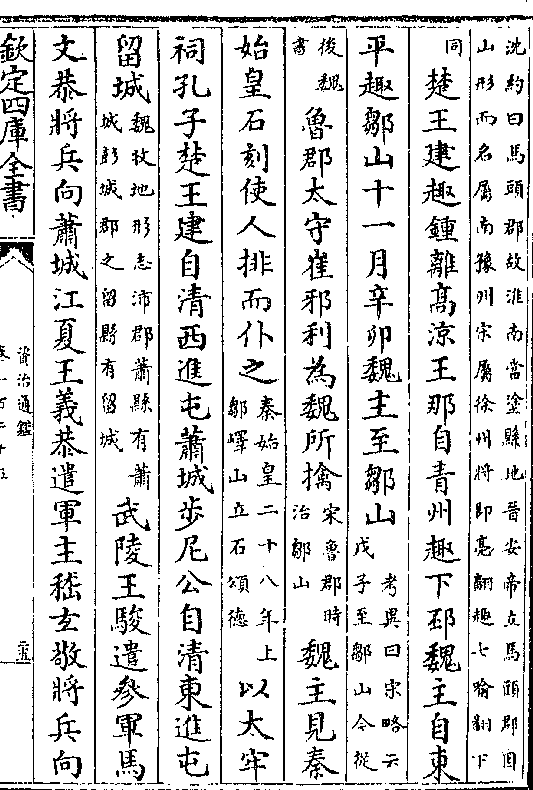 沈約曰馬頭郡故淮南當塗縣地晉安帝立馬頭郡因
山形而名屬南豫州宋屬徐州將即亮翻趣七喻翻下
同楚王建趣鍾離高涼王那自青州趣下邳魏主自東
平趣鄒山十一月辛卯魏主至鄒山考異曰宋略云
戊子至鄒山今從
後魏
書魯郡太守崔邪利為魏所擒宋魯郡時
治鄒山魏主見秦
始皇石刻使人排而仆之秦始皇二十八年上
鄒嶧山立石頌德以太牢
祠孔子楚王建自清西進屯蕭城步尼公自清東進屯
留城魏收地形志沛郡蕭縣有蕭
城彭城郡之留縣有留城武陵王駿遣參軍馬
文恭將兵向蕭城江夏王義恭遣軍主嵇玄敬將兵向
欽定四庫全書
資治通鑑
卷一百二十五